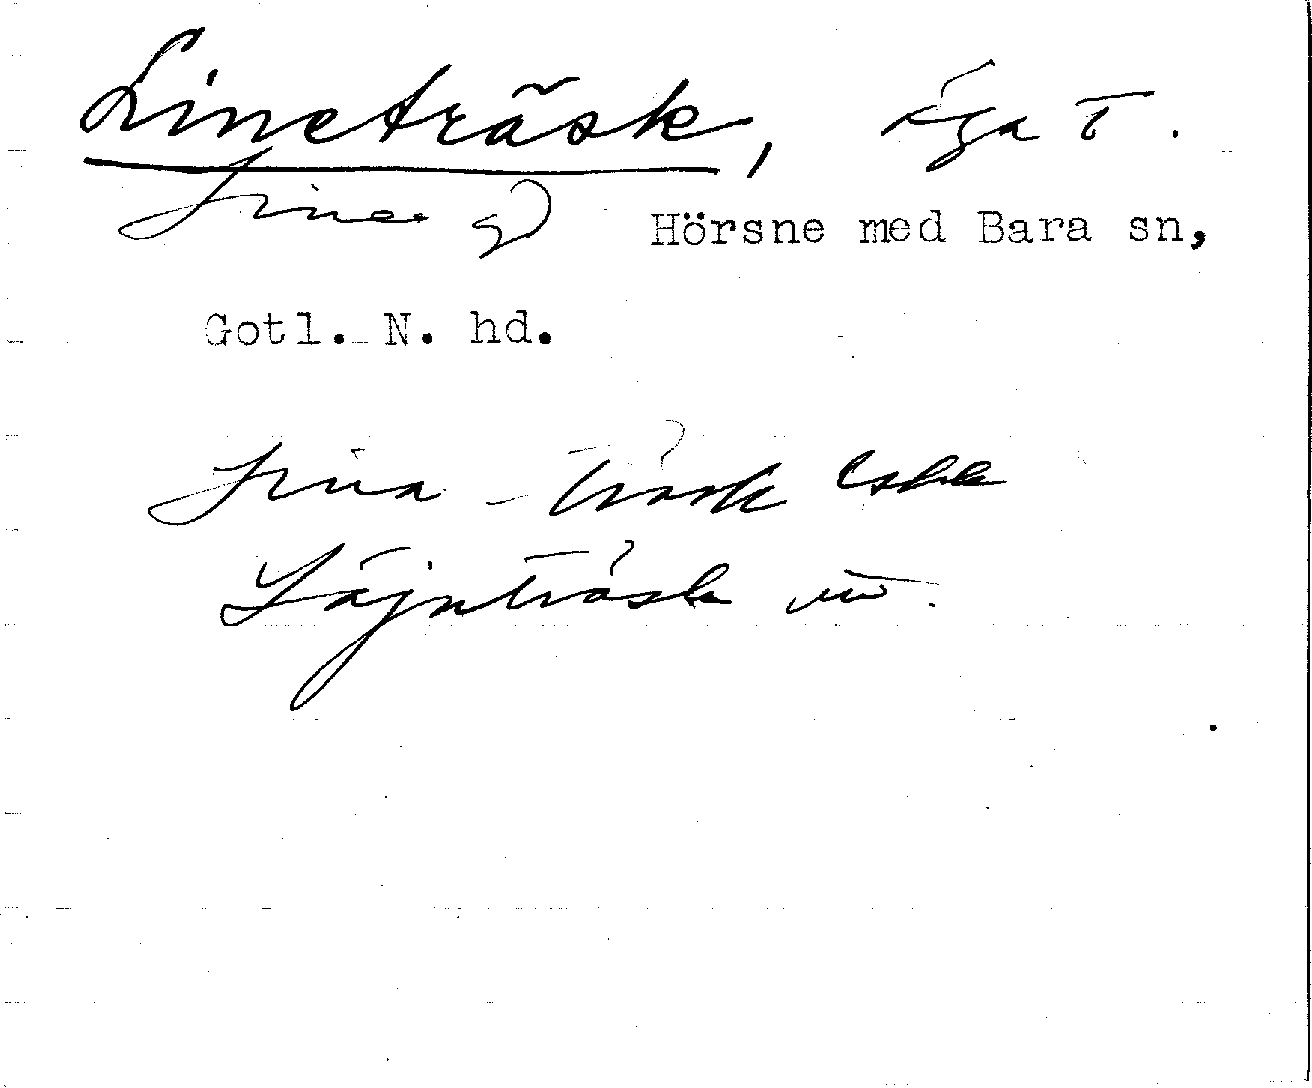 Lineträsk, äga T.
Line g) Hörsne med Bara sn,
Gotl. N. hd.
Lina - träsk
Läjnträsk